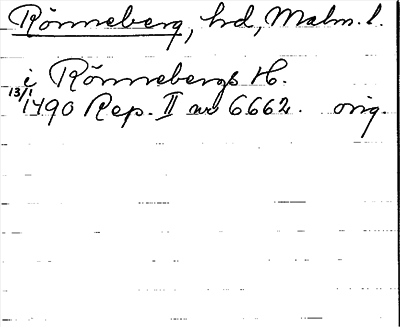 Rönneberg, hd, Malm. l.
i Rönnebergs H.
13/1 1490 Rep. II nr 6662. orig.